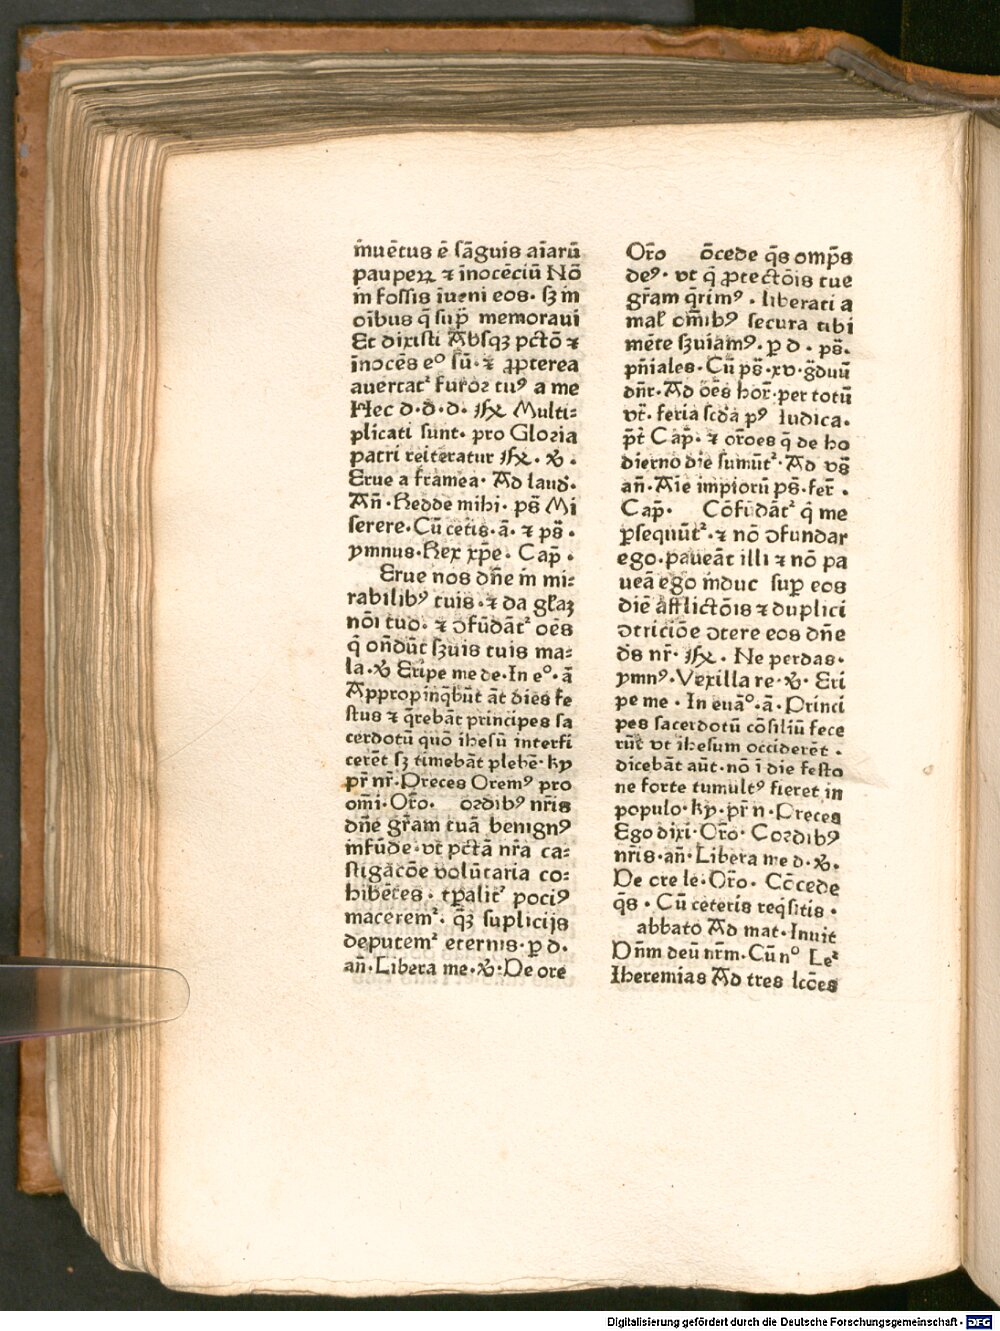 inuētus ē sāguis aīarū
pauperꝝ ⁊ inocēciū Nō
in fossis īueni eos· sꝫ in
oībus q̄ sup̄ memoraui
Et dixisti Absqꝫ pctō ⁊
inocēs e° sū· ⁊ ꝓpterea
auertat᷑ furoꝛ tuꝰ a me
Hec d·d·d· Multi⸗
plicati sunt· pro Gloꝛia
patri reiteratur ℟· ℣·
Erue a framea· Ad laud̄·
Añ·Redde mihi· ps̄ Mi
serere·Cū cetis·ā· ⁊ ps̄·
ymnus·Rex xp̄e· Cap̄·
Erue nos dn̄e in mi⸗
rabilibꝰ tuis·⁊ da gl̄aꝫ
nōi tuo· ⁊ ↄfūdāt᷑ oēs
q̄ on̄dūt sꝫuis tuis ma⸗
la·℣ Eripe me de·In e°·ā
Appropinq̄būt āt dies fe
stus ⁊ q̄rebāt principes sa
cerdotū quō ihesū interfi
cerēt sꝫ timebāt plebē·ky
pr̄ nr̄·Preces Oremꝰ pro
om̄i·Or̄o· oꝛdibꝰ nr̄is
dn̄e gr̄am tuā benignꝰ
infūde·vt pctā nr̄a ca⸗
stigacōe volūtaria co⸗
hibētes· tp̄alit᷑ pociꝰ
macerem᷑· q̄ꝫ suplicijs
deputem᷑ eternis·p d·
añ·Libera me·℣·De ore
Or̄o ōcede q̄s omp̄s
deꝰ· vt q̄ ꝓtectōis tue
gr̄am q̄rimꝰ· liberati a
mal̄ om̄ibꝰ secura tibi
mēte sꝫuiamꝰ·p d· ps̄·
pn̄iales·Cū ps̄·xv·g̈duū
dn̄r·Ad oēs hor̄·per totū
vt̄· feria scd̄a pꝰ Iudica·
p̄t Cap̄·⁊ or̄oes q̄ de ho
dierno die sumūt᷑·Ad vs̄
añ·Aīe impiorū ps̄·fer̄·
Cap̄· Cōfūdāt᷑ q̄ me
ꝑsequūt᷑·⁊ nō ↄfundar
ego·paueāt illi ⁊ nō pa
ueā ego induc sup̄ eos
diē afflictōis ⁊ duplici
ↄtriciōe ↄtere eos dn̄e
ds̄ nr̄· ℟· Ne perdas·
ymnꝰ·Vexilla re·℣· Eri
pe me· In euā°·ā·Princi
pes sacerdotū cōsiliū fece
rūt vt ihesum occiderēt·
dicebāt aūt·nō ī die festo
ne forte tumultꝰ fieret in
populo·ky·pr̄ n·Preces
Ego dixi·Or̄o·Coꝛdibꝰ
nr̄is·añ·Libera me d·℣·
De ore le·Or̄o· Cōcede
q̄s·Cū ceteris reqͥsitis·
abbato Ad mat·Inuit
Dn̄m deū nr̄m·Cū n° Le᷑
Iheremias Ad tres lcōes
Digitalisierung gefördert durch die Deutsche Forschungsgemeinschaft · DFG